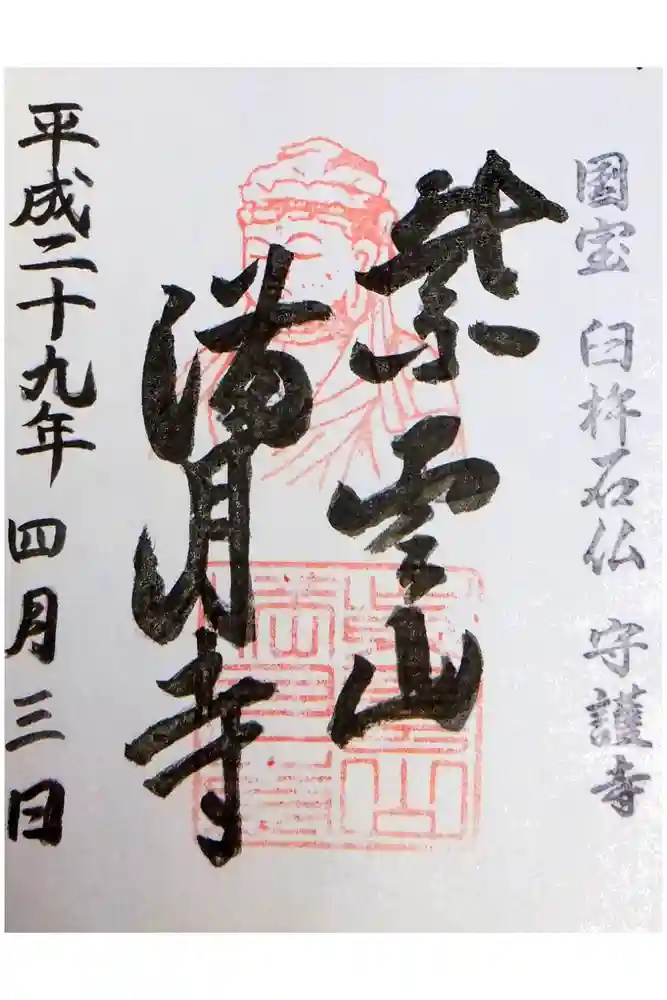 国宝 臼杵石仏 守護寺
紫雲山
満月寺
平成二十九年 四月三日